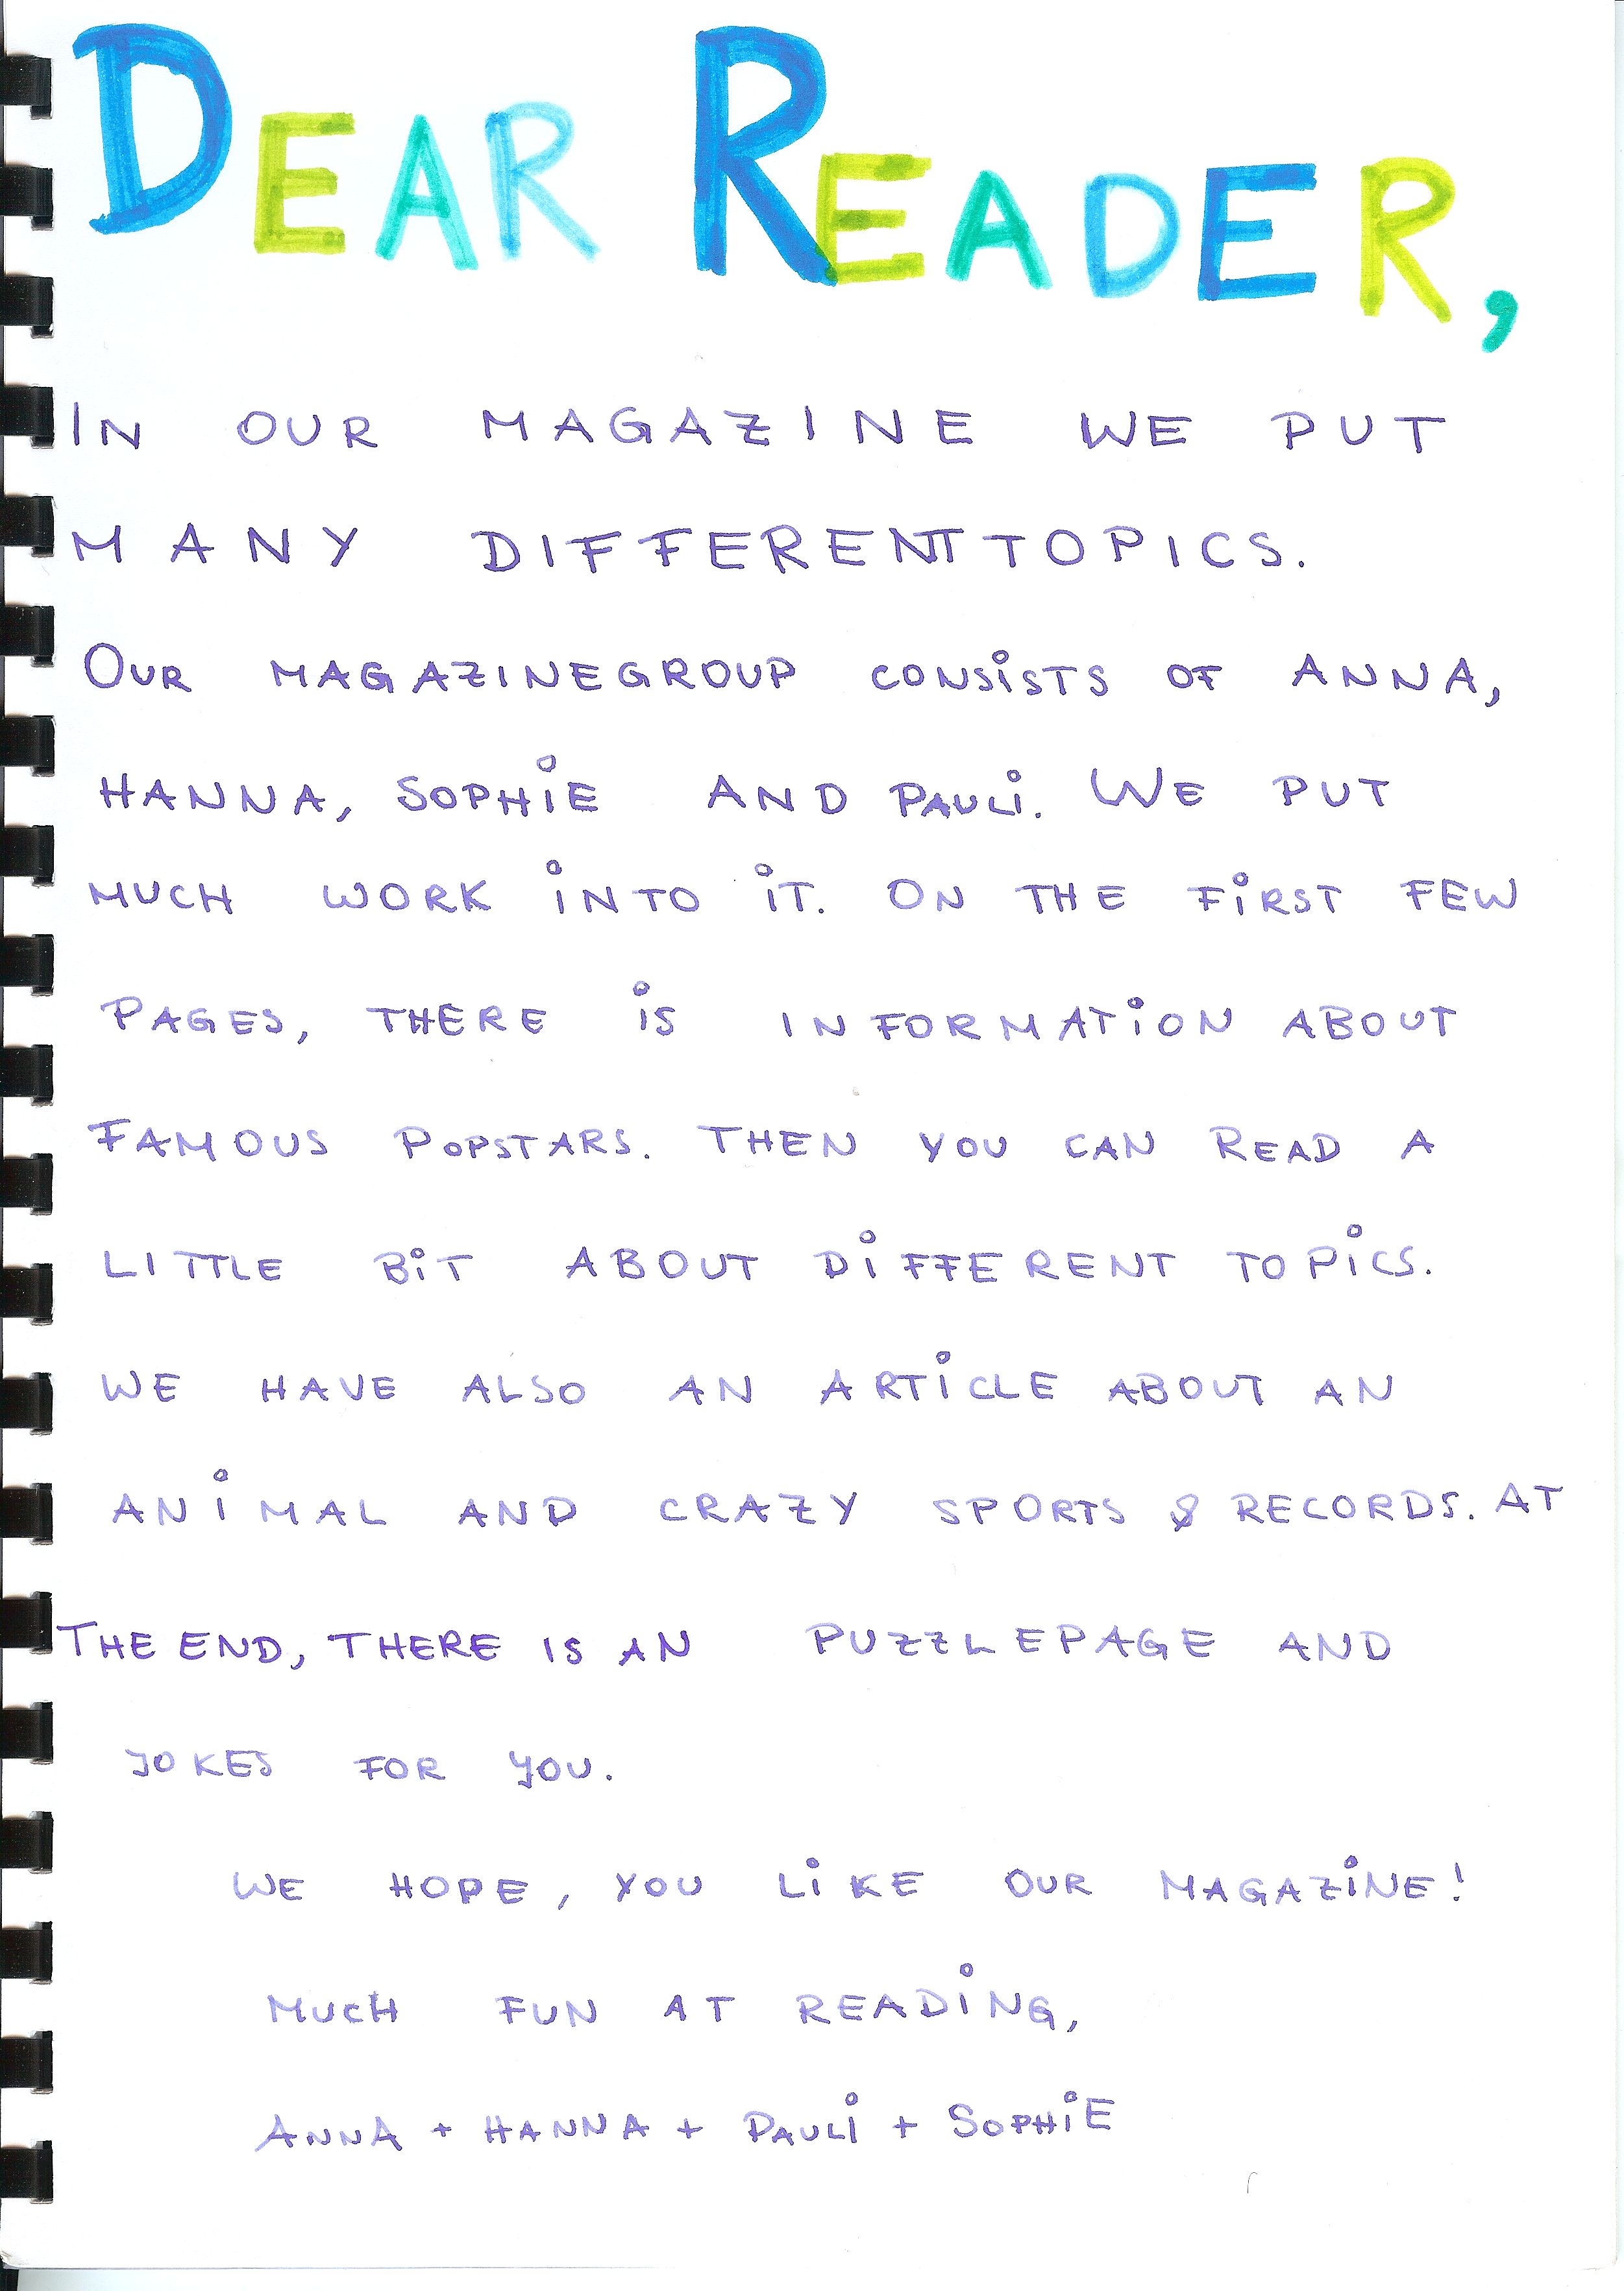 DEAR READER,
IN OUR MAGAZINE WE PUT
MANY DIFFERENT TOPICS.
OUR MAGAZINEGROUP CONSiSTS OF ANNA,
HANNA, SOPHiE AND PAULi. WE PUT
MUCH WORK iNTO iT. ON THE FiRST FEW
PAGES, THERE iS INFORMATiON ABOUT
FAMOUS POPSTARS. THEN YOU CAN READ A
LITTLE BiT ABOUT DiFFERENT TOPiCS.
WE HAVE ALSO AN ARTiCLE ABOUT AN
ANiMAL AND CRAZY SPORTS & RECORDS. AT
THE END, THERE IS AN PUZZLEPAGE AND
JOKES FOR YOU.
WE HOPE, YOU LiKE OUR MAGAZiNE!
MUCH FUN AT READiNG,
ANNA + HANNA + PAULi + SOPHiE